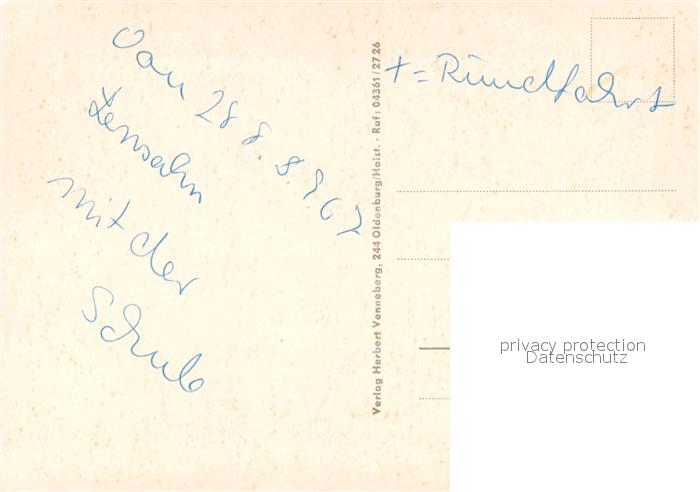 Von 28 8. 8. 67
Lensahn
mit der
Schule
Verlag Herbert Venneberg, 244 Oldenburg/Holst. · Ruf: 04361/2726
+ = Rundfahrt
privacy protection
Datenschutz